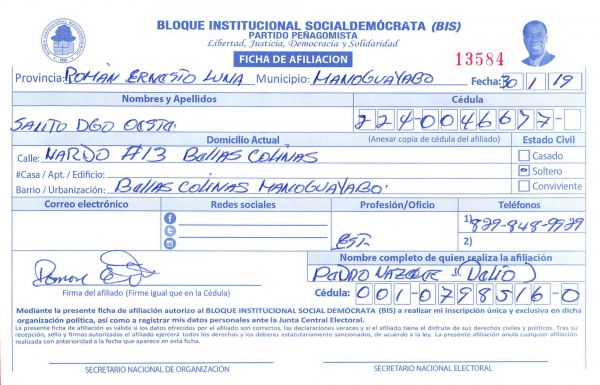 BLOQUE INSTITUCIONAL SOCIALDEMÓCRATA (BIS)
PARTIDO PEÑAGOMISTA
Libertad, Justicia, Democracia y Solidaridad
FICHA DE AFILIACION
13584
Provincia: ROMAN ERNESTO LUNA Municipio: MANOGUAYABO Fecha: 30 1 19
Nombres y Apellidos Cédula
SANTO DGO OESTE. 224-0046677-
Domicilio Actual (Anexar copia de cédula del afiliado) Estado Civil
Calle: NARDO #13 BELLAS COLINAS Casado
#Casa / Apt. / Edificio: Soltero
Barrio / Urbanización: BELLAS COLINAS MANOGUAYABO. Conviviente
Correo electrónico Redes sociales Profesión/Oficio Teléfonos
1) 829-848-9929
EST. 2)
Nombre completo de quien realiza la afiliación
PEDRO (DELIO)
Firma del afiliado (Firme igual que en la Cédula) Cédula: 001-0798516-0
Mediante la presente ficha de afiliación autorizo al BLOQUE INSTITUCIONAL SOCIAL DEMÓCRATA (BIS) a realizar mi inscripción única y exclusiva en dicha
organización política, así como a registrar mis datos personales ante la Junta Central Electoral.
La presente ficha de afiliación es válida si los datos ofrecidos por el afiliado son correctos, las declaraciones veraces y si el afiliado tiene el disfrute de sus derechos civiles y políticos. Tras su
recepción, sello y firmas autorizadas el afiliado ejercerá todos los derechos y los deberes estatutariamente sancionados, de acuerdo a la ley. La presente afiliación anula cualquier afiliación
realizada con anterioridad a la fecha que aparece en esta ficha.
SECRETARIO NACIONAL DE ORGANIZACIÓN SECRETARIO NACIONAL ELECTORAL